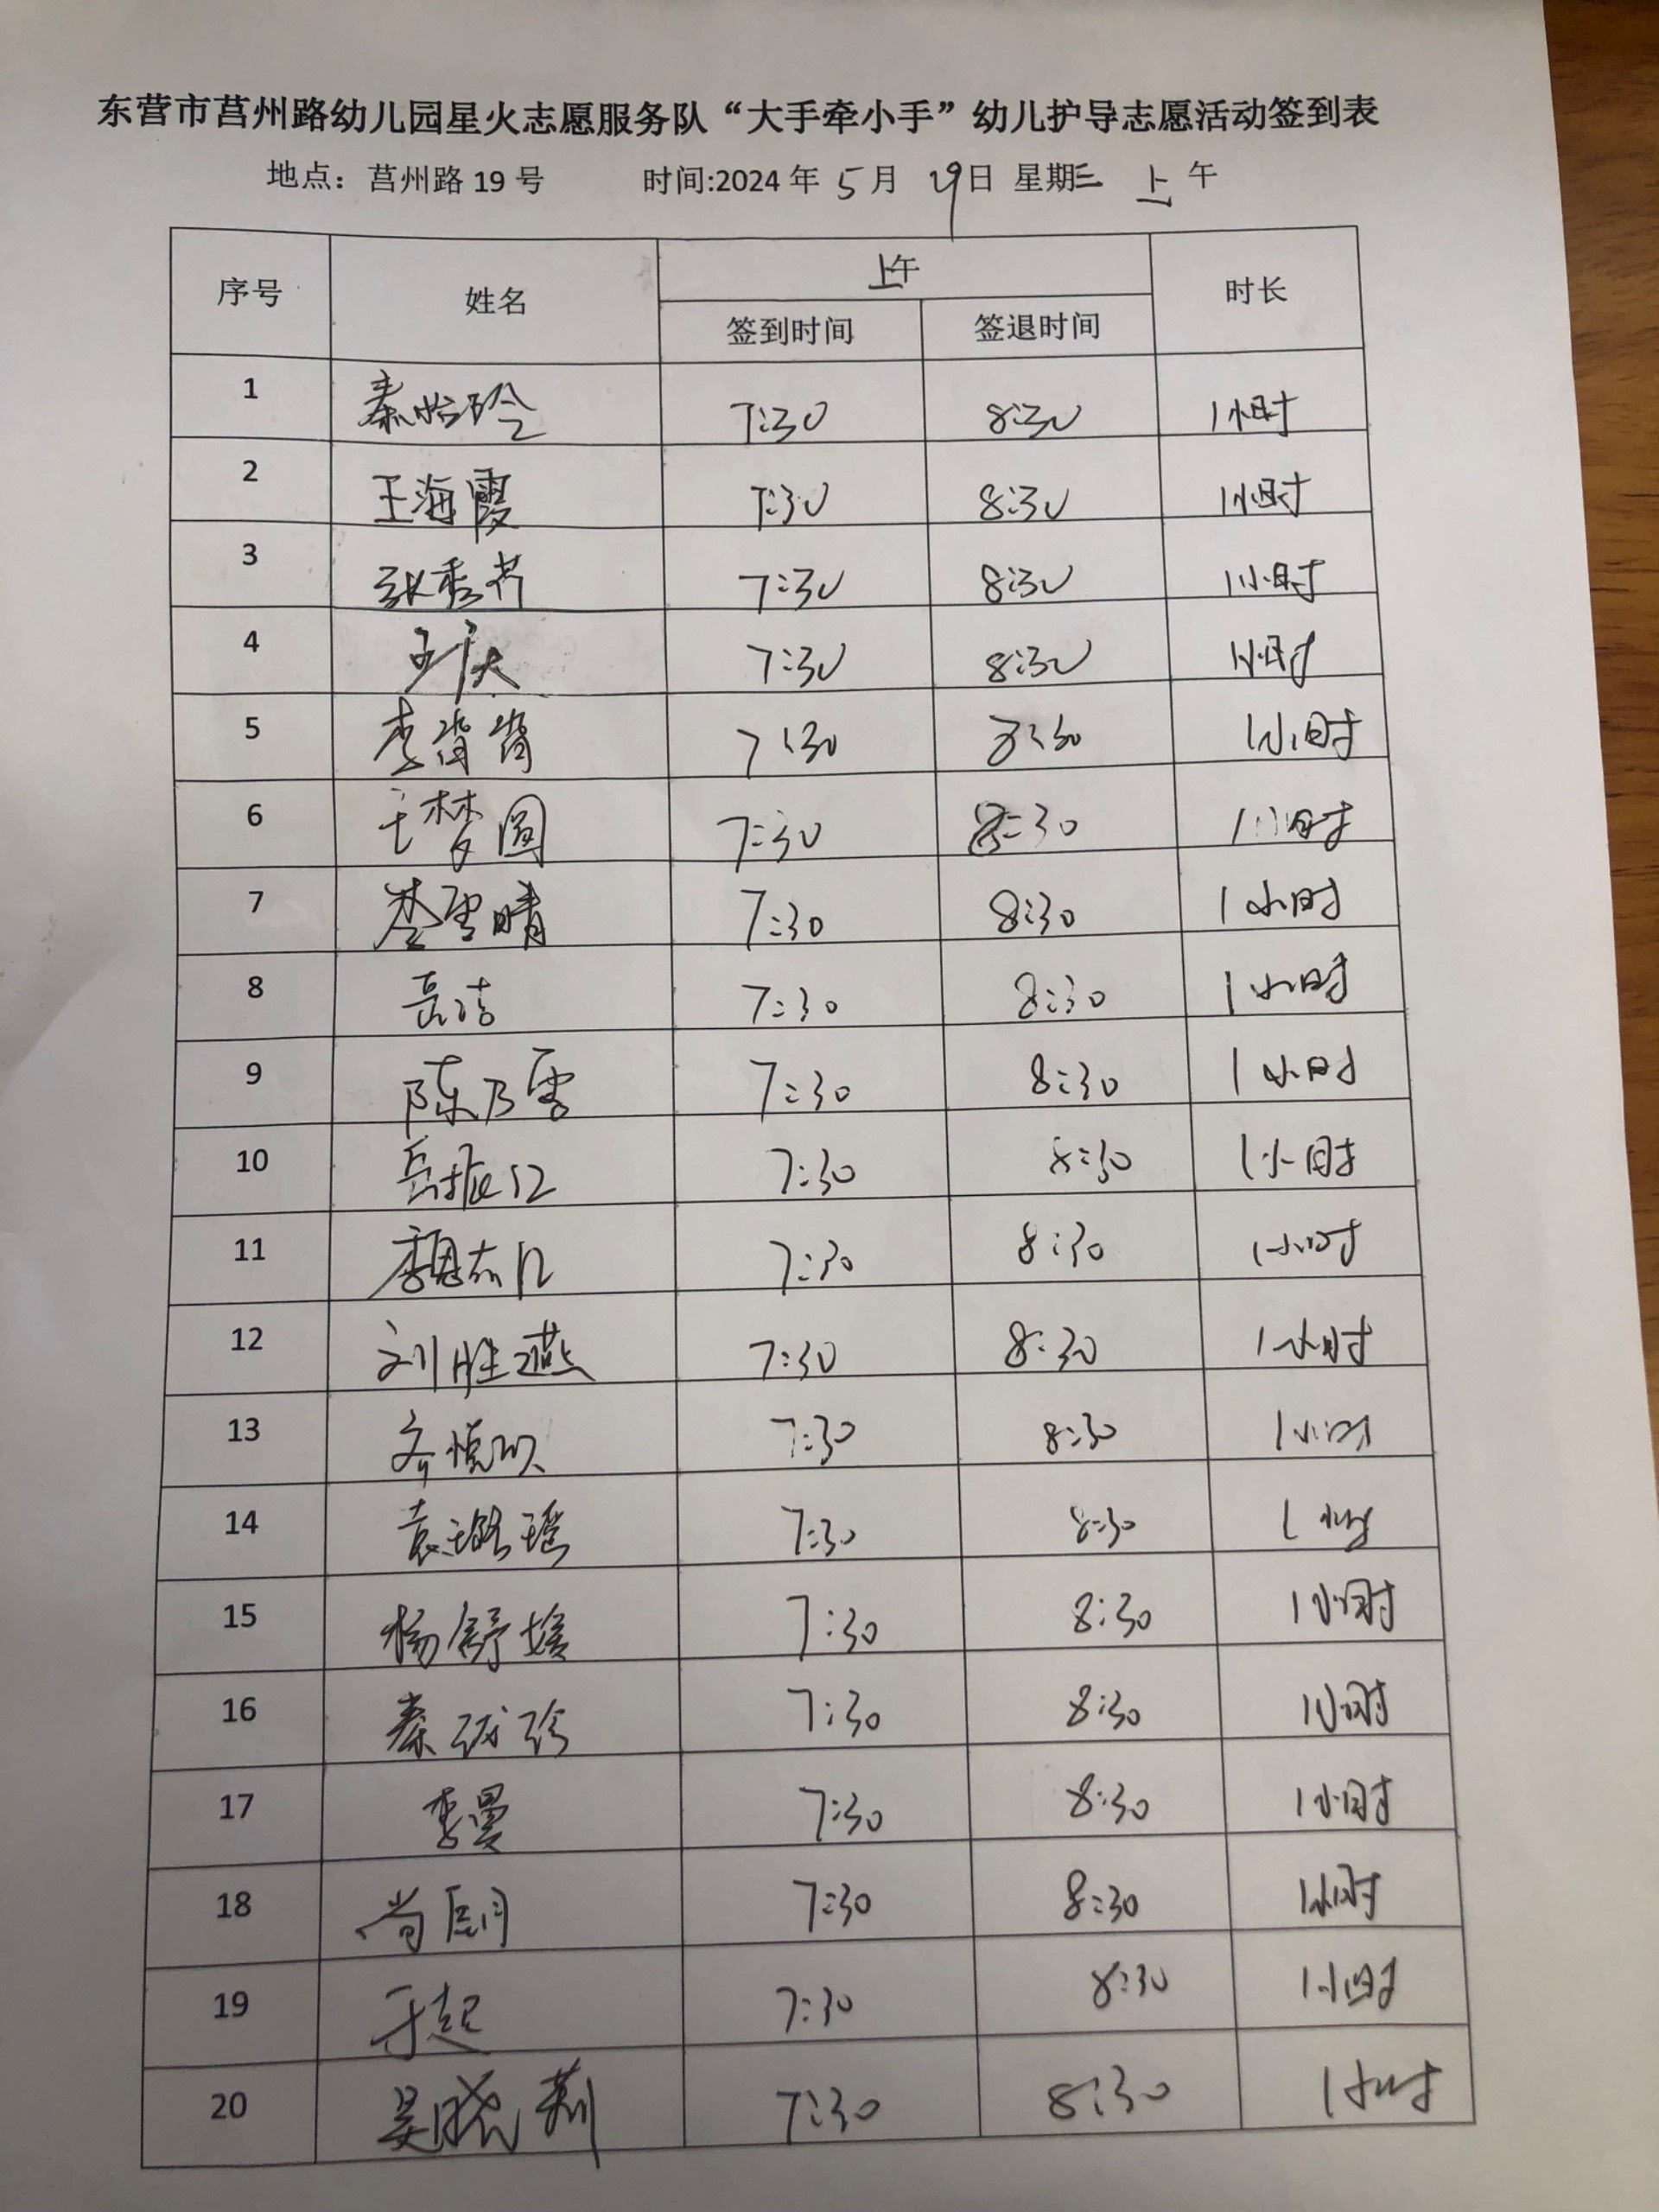 东营市莒州路幼儿园星火志愿服务队“大手牵小手”幼儿护导志愿活动签到表
地点：莒州路 19 号 时间:2024 年 5 月 29日 星期三 上 午
序号 姓名 上午 时长
签到时间 签退时间
1 秦怡玲 7:30 8:30 1小时
2 王海霞 7:30 8:30 1小时
3 张秀芳 7:30 8:30 1小时
4 7:30 8:30 1小时
5 李肖肖 7:30 8:30 1小时
6 王梦圆 7:30 8:30 1小时
7 李雪晴 7:30 8:30 1小时
8 岳洁 7:30 8:30 1小时
9 陈乃雪 7:30 8:30 1小时
10 岳振江 7:30 8:30 1小时
11 7:30 8:30 1小时
12 刘胜燕 7:30 8:30 1小时
13 7:30 8:30 1小时
14 袁璐瑶 7:30 8:30 1小时
15 杨舒媛 7:30 8:30 1小时
16 7:30 8:30 1小时
17 李曼 7:30 8:30 1小时
18 7:30 8:30 1小时
19 于起 7:30 8:30 1小时
20 吴晓莉 7:30 8:30 1小时